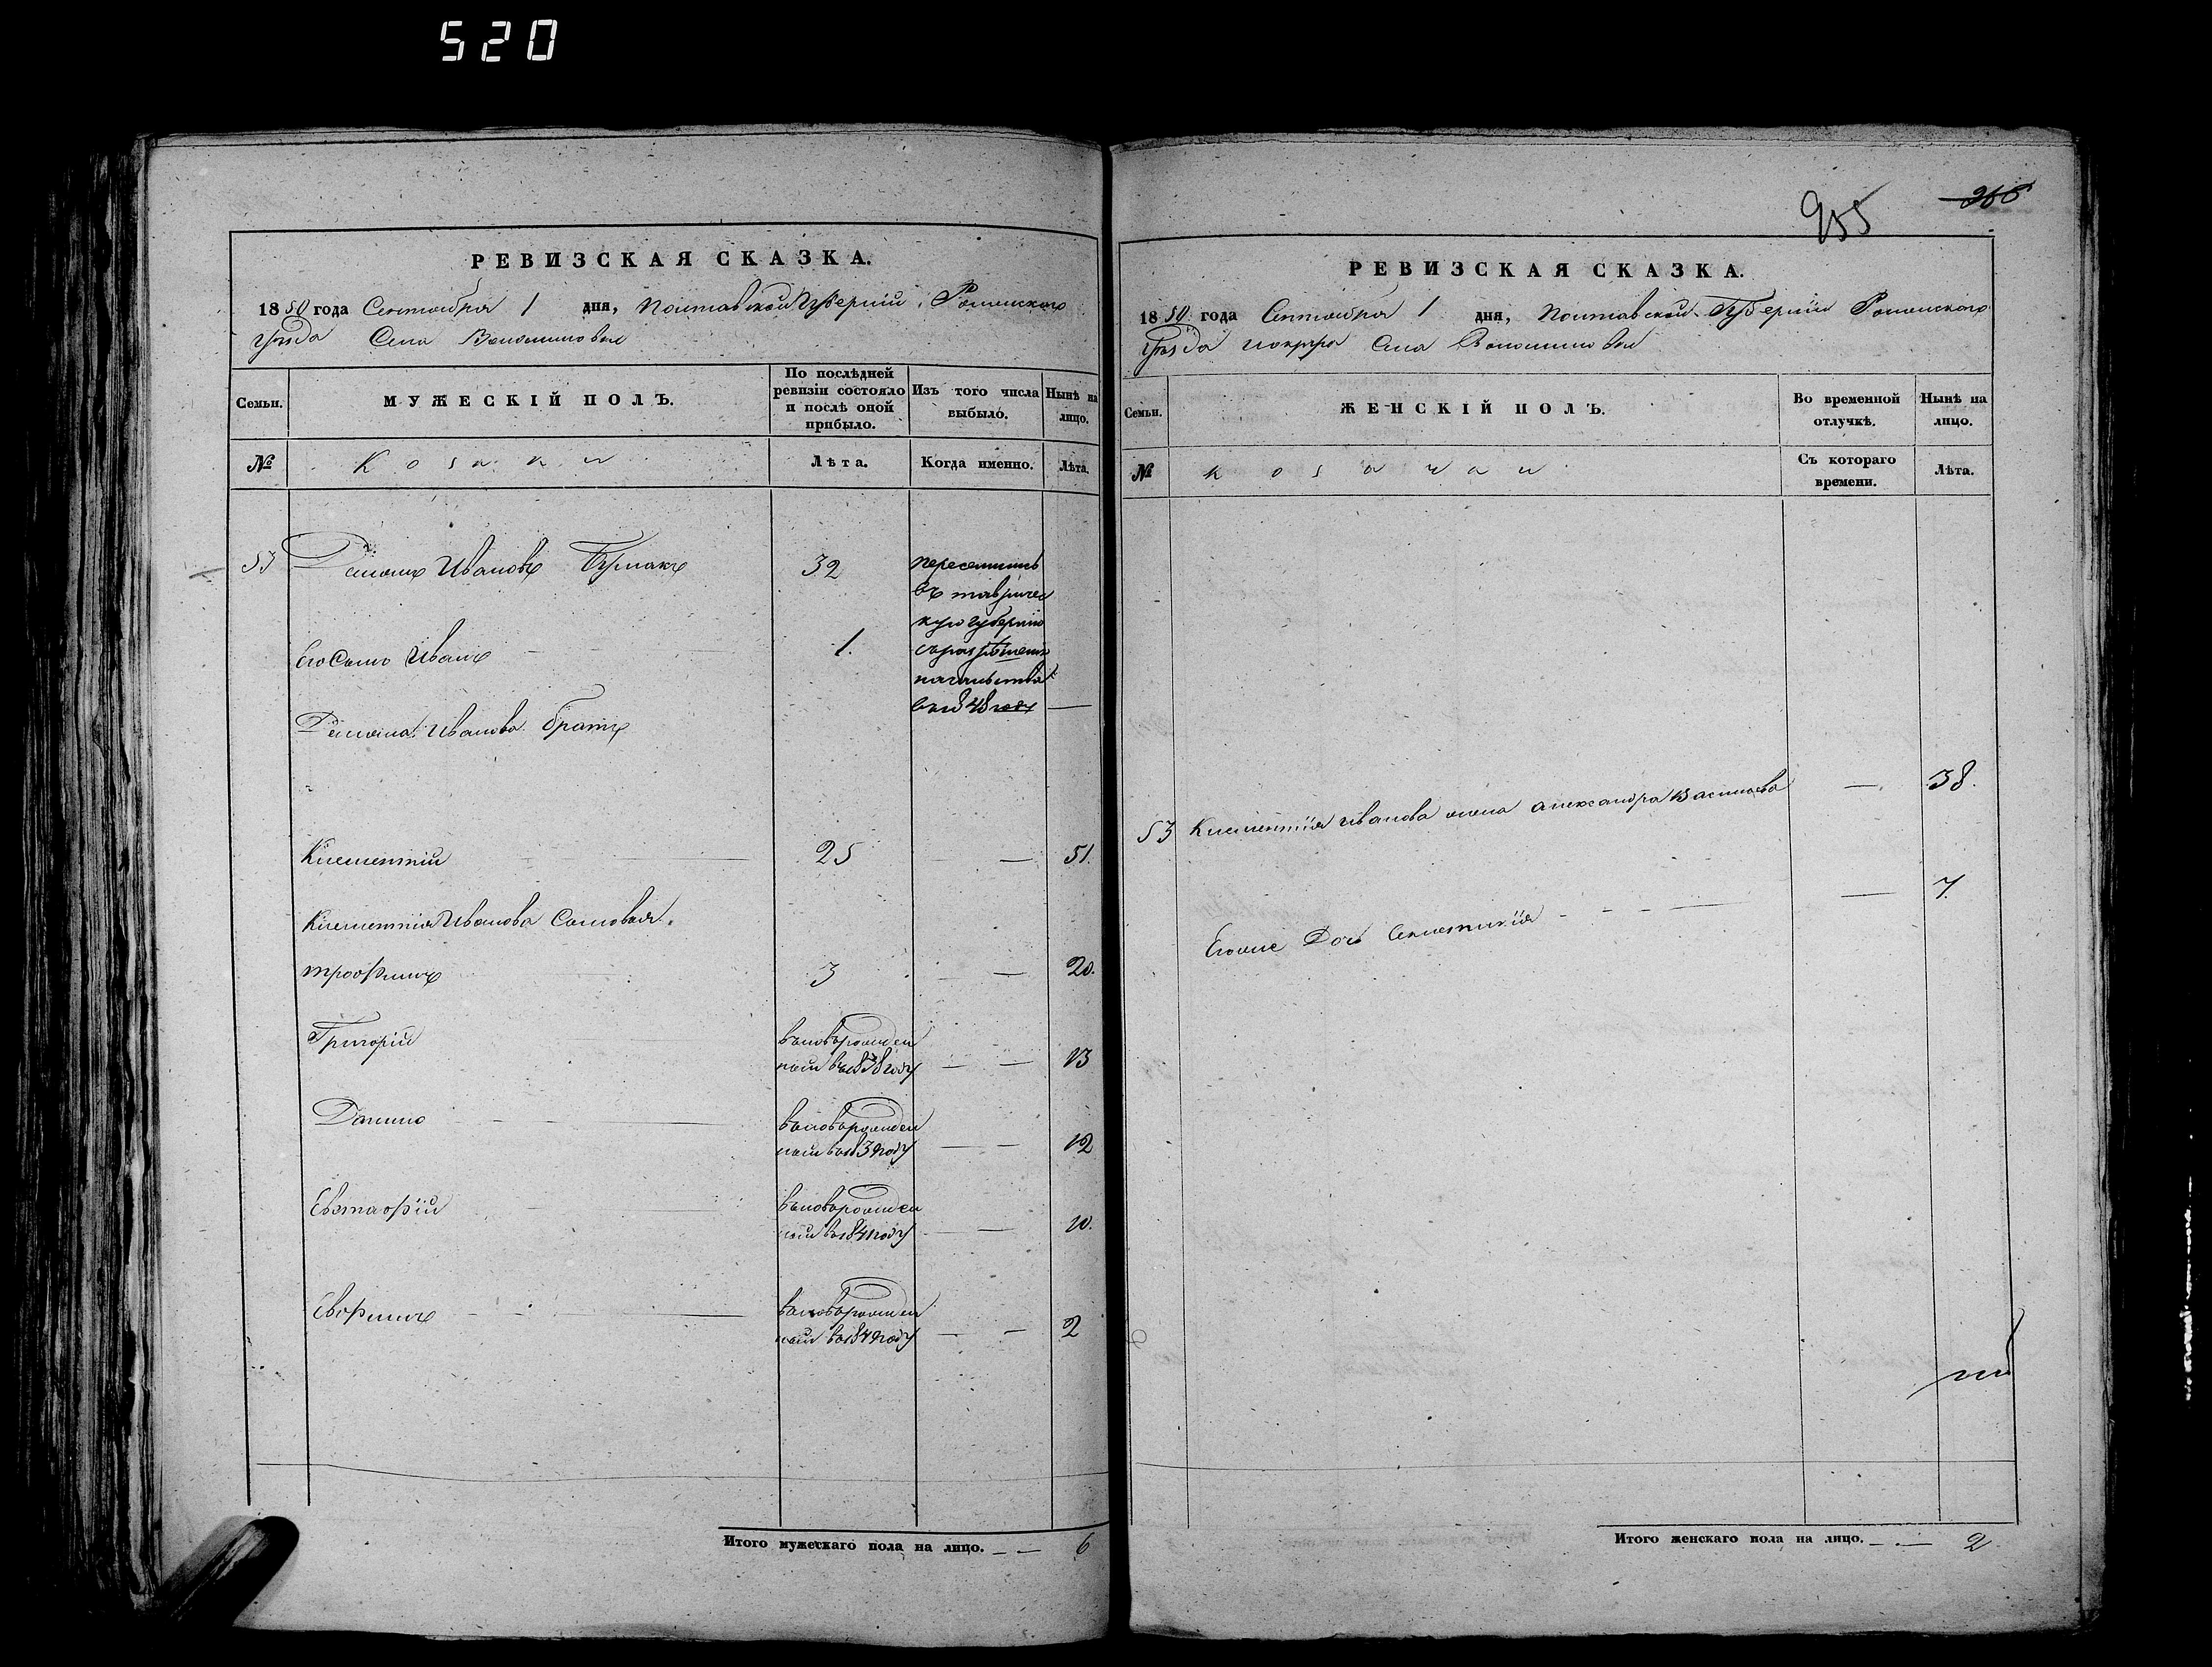 520
255
266
РЕВИЗСКАЯ СКАЗКА.
1850 года Сентября 1 дня, Полтавской Губерніи, Роменскаго
Уѣзда Села Волошиновки
Семьи.
МУЖЕСКІЙ ПОЛЪ.
По послѣдней ревизіи состояло и послѣ оной прибыло.
Изъ того числа выбыло.
Нынѣ на лицо.
№
Козаки
Лѣта.
Когда именно.
Лѣта.
53 Ивановъ 32
переселились
въ тавричес
кую губернію
начальства
въ 1848 году —
Его Сынъ Иванъ 1.
Иванова братъ
Климентій — 25 — 51.
Климентія Иванова Сыновья.
трофимъ 3 — 20.
Григорій
вновьрожден
ный въ 1838 году — — 13
Данило —
вновьрожден
ный въ 1839 году — — 12
Евстафій —
вновьрожден
ный въ 1841 году — — 10.
Евфимъ —
вновьрожден
ный въ 1849 году — — 2
Итого мужескаго пола на лицо. — — 6
РЕВИЗСКАЯ СКАЗКА.
1850 года Сентября 1 дня, Полтавской Губерніи Роменскаго
Уѣзда Села Волошиновки
Семьи.
ЖЕНСКІЙ ПОЛЪ.
Во временной отлучкѣ.
Нынѣ на лицо.
№
Козачки
Съ котораго времени.
Лѣта.
53 Климентія Иванова жена Александра Васильева — 38.
Егоже Дочь — 7.
Итого женскаго пола на лицо. — — 2